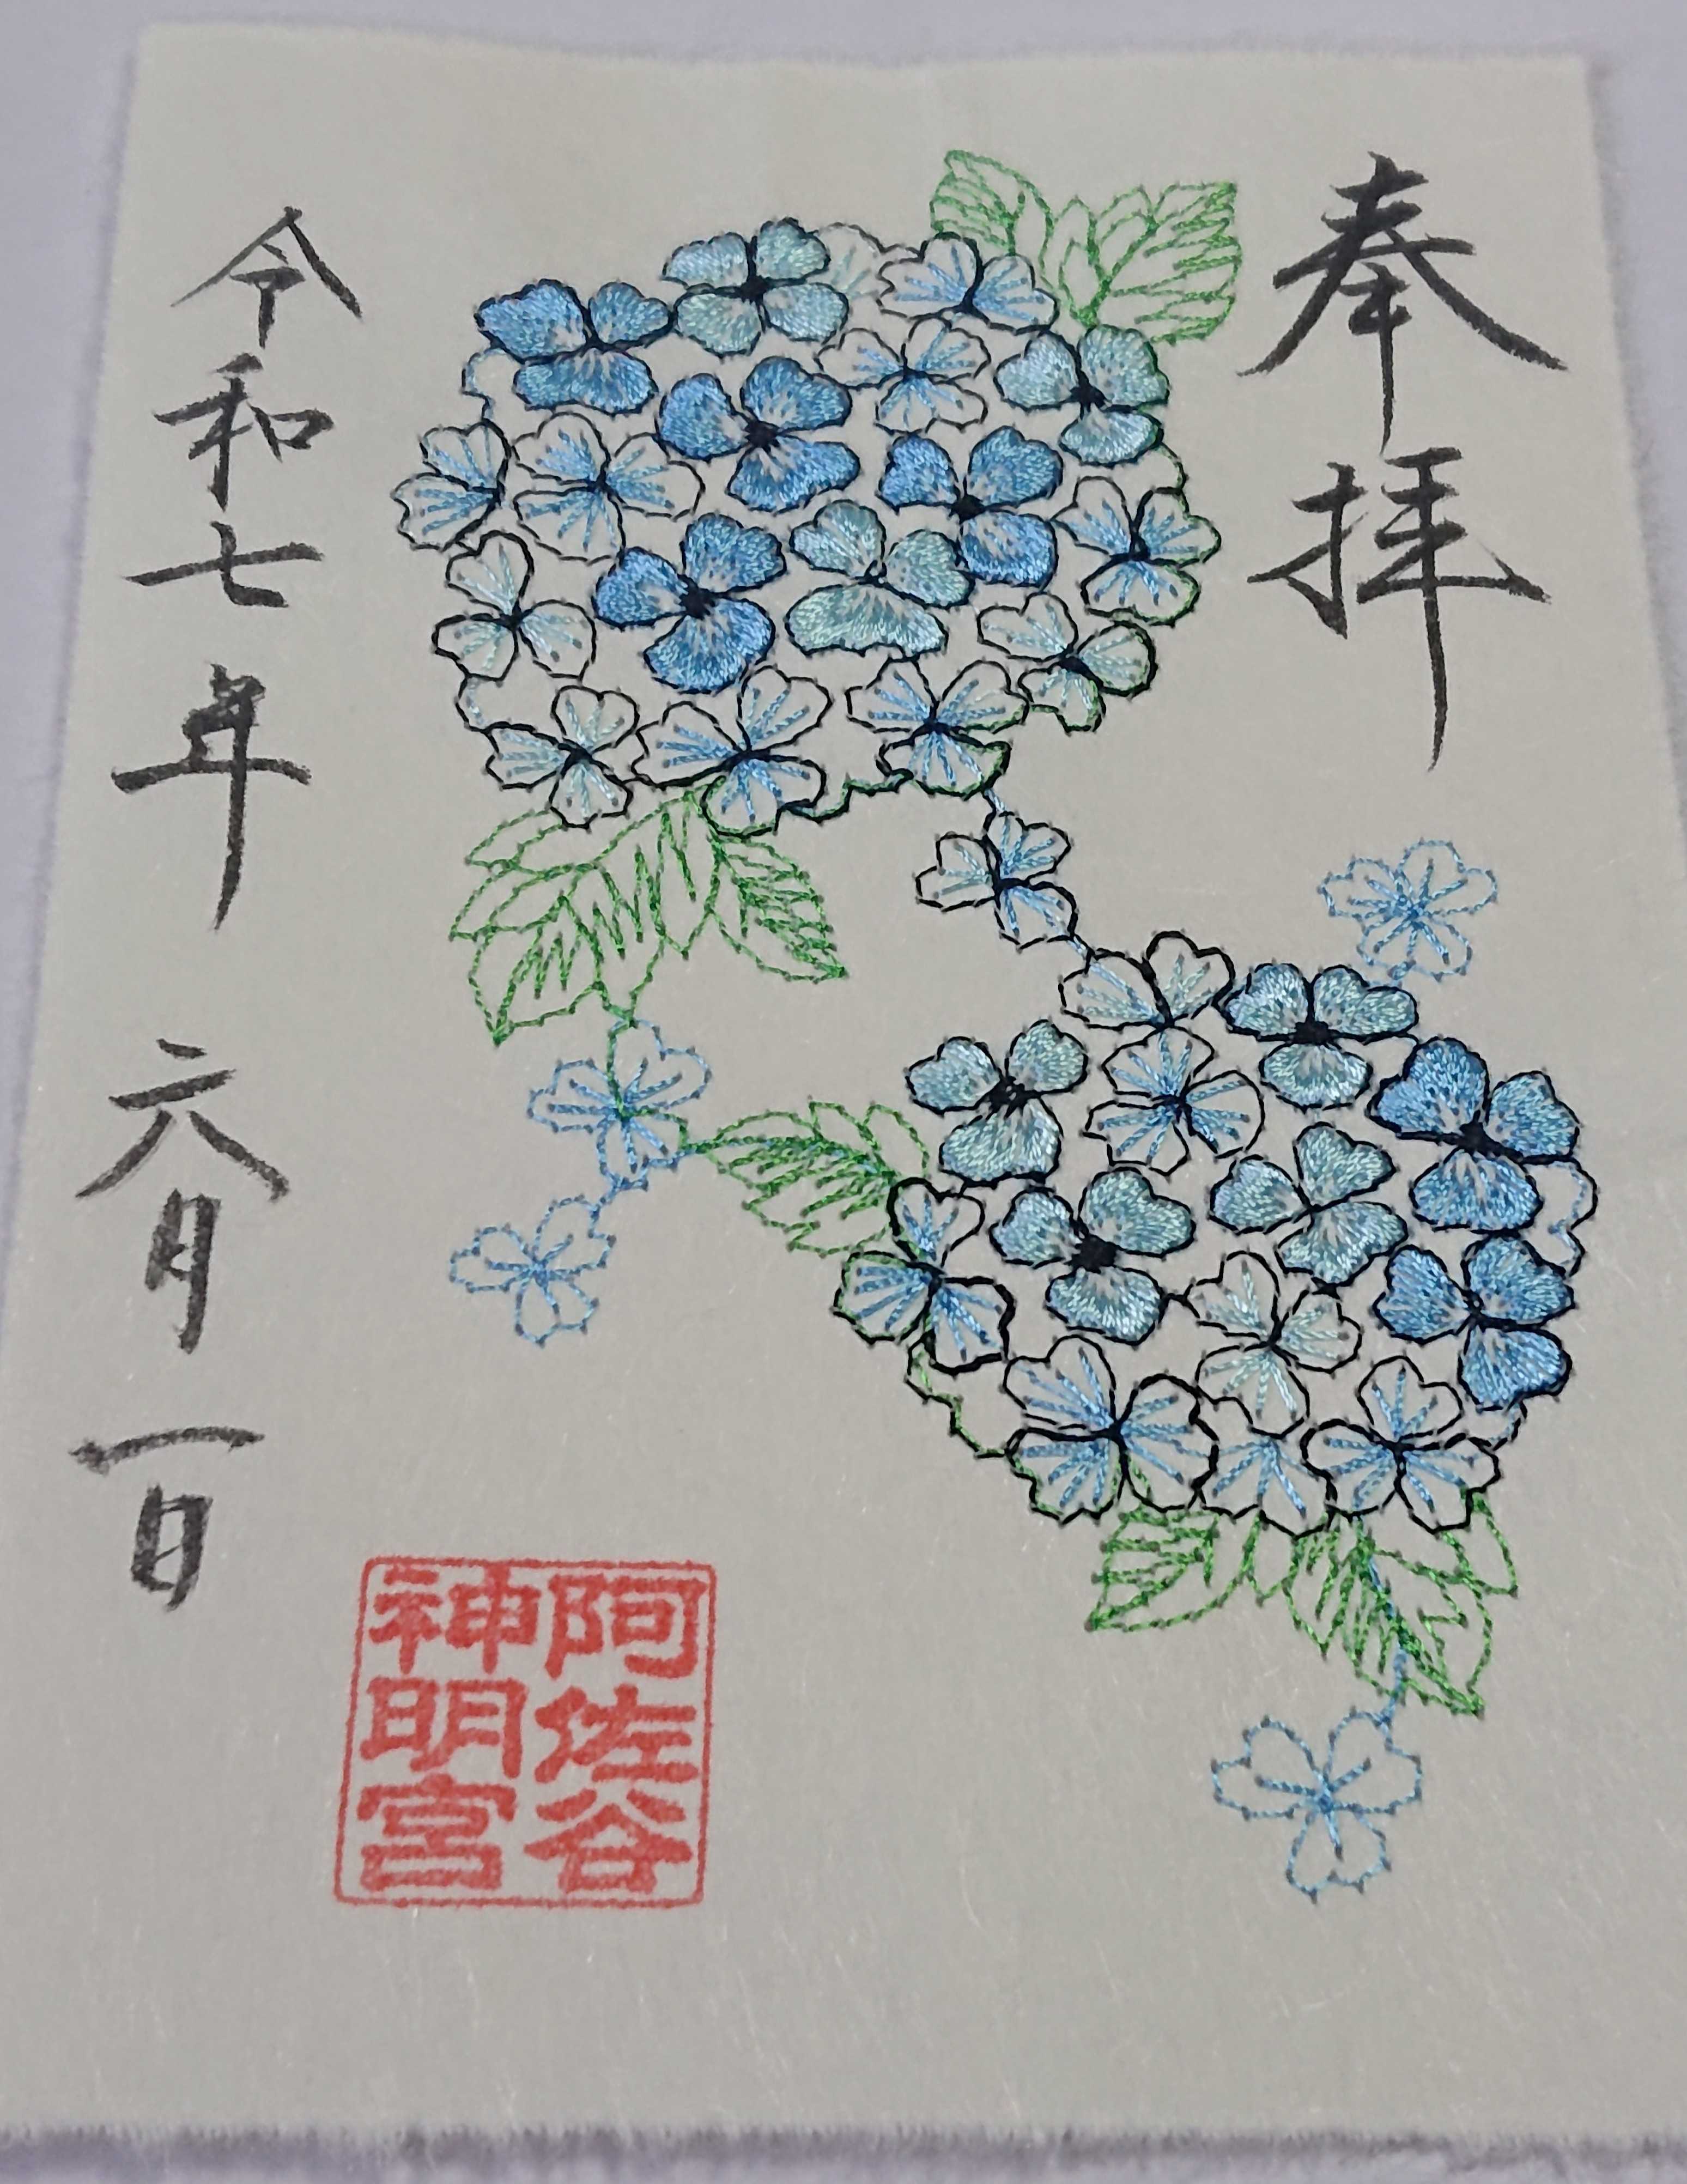 奉拝
令和七年 六月一日
阿佐谷
神明宮